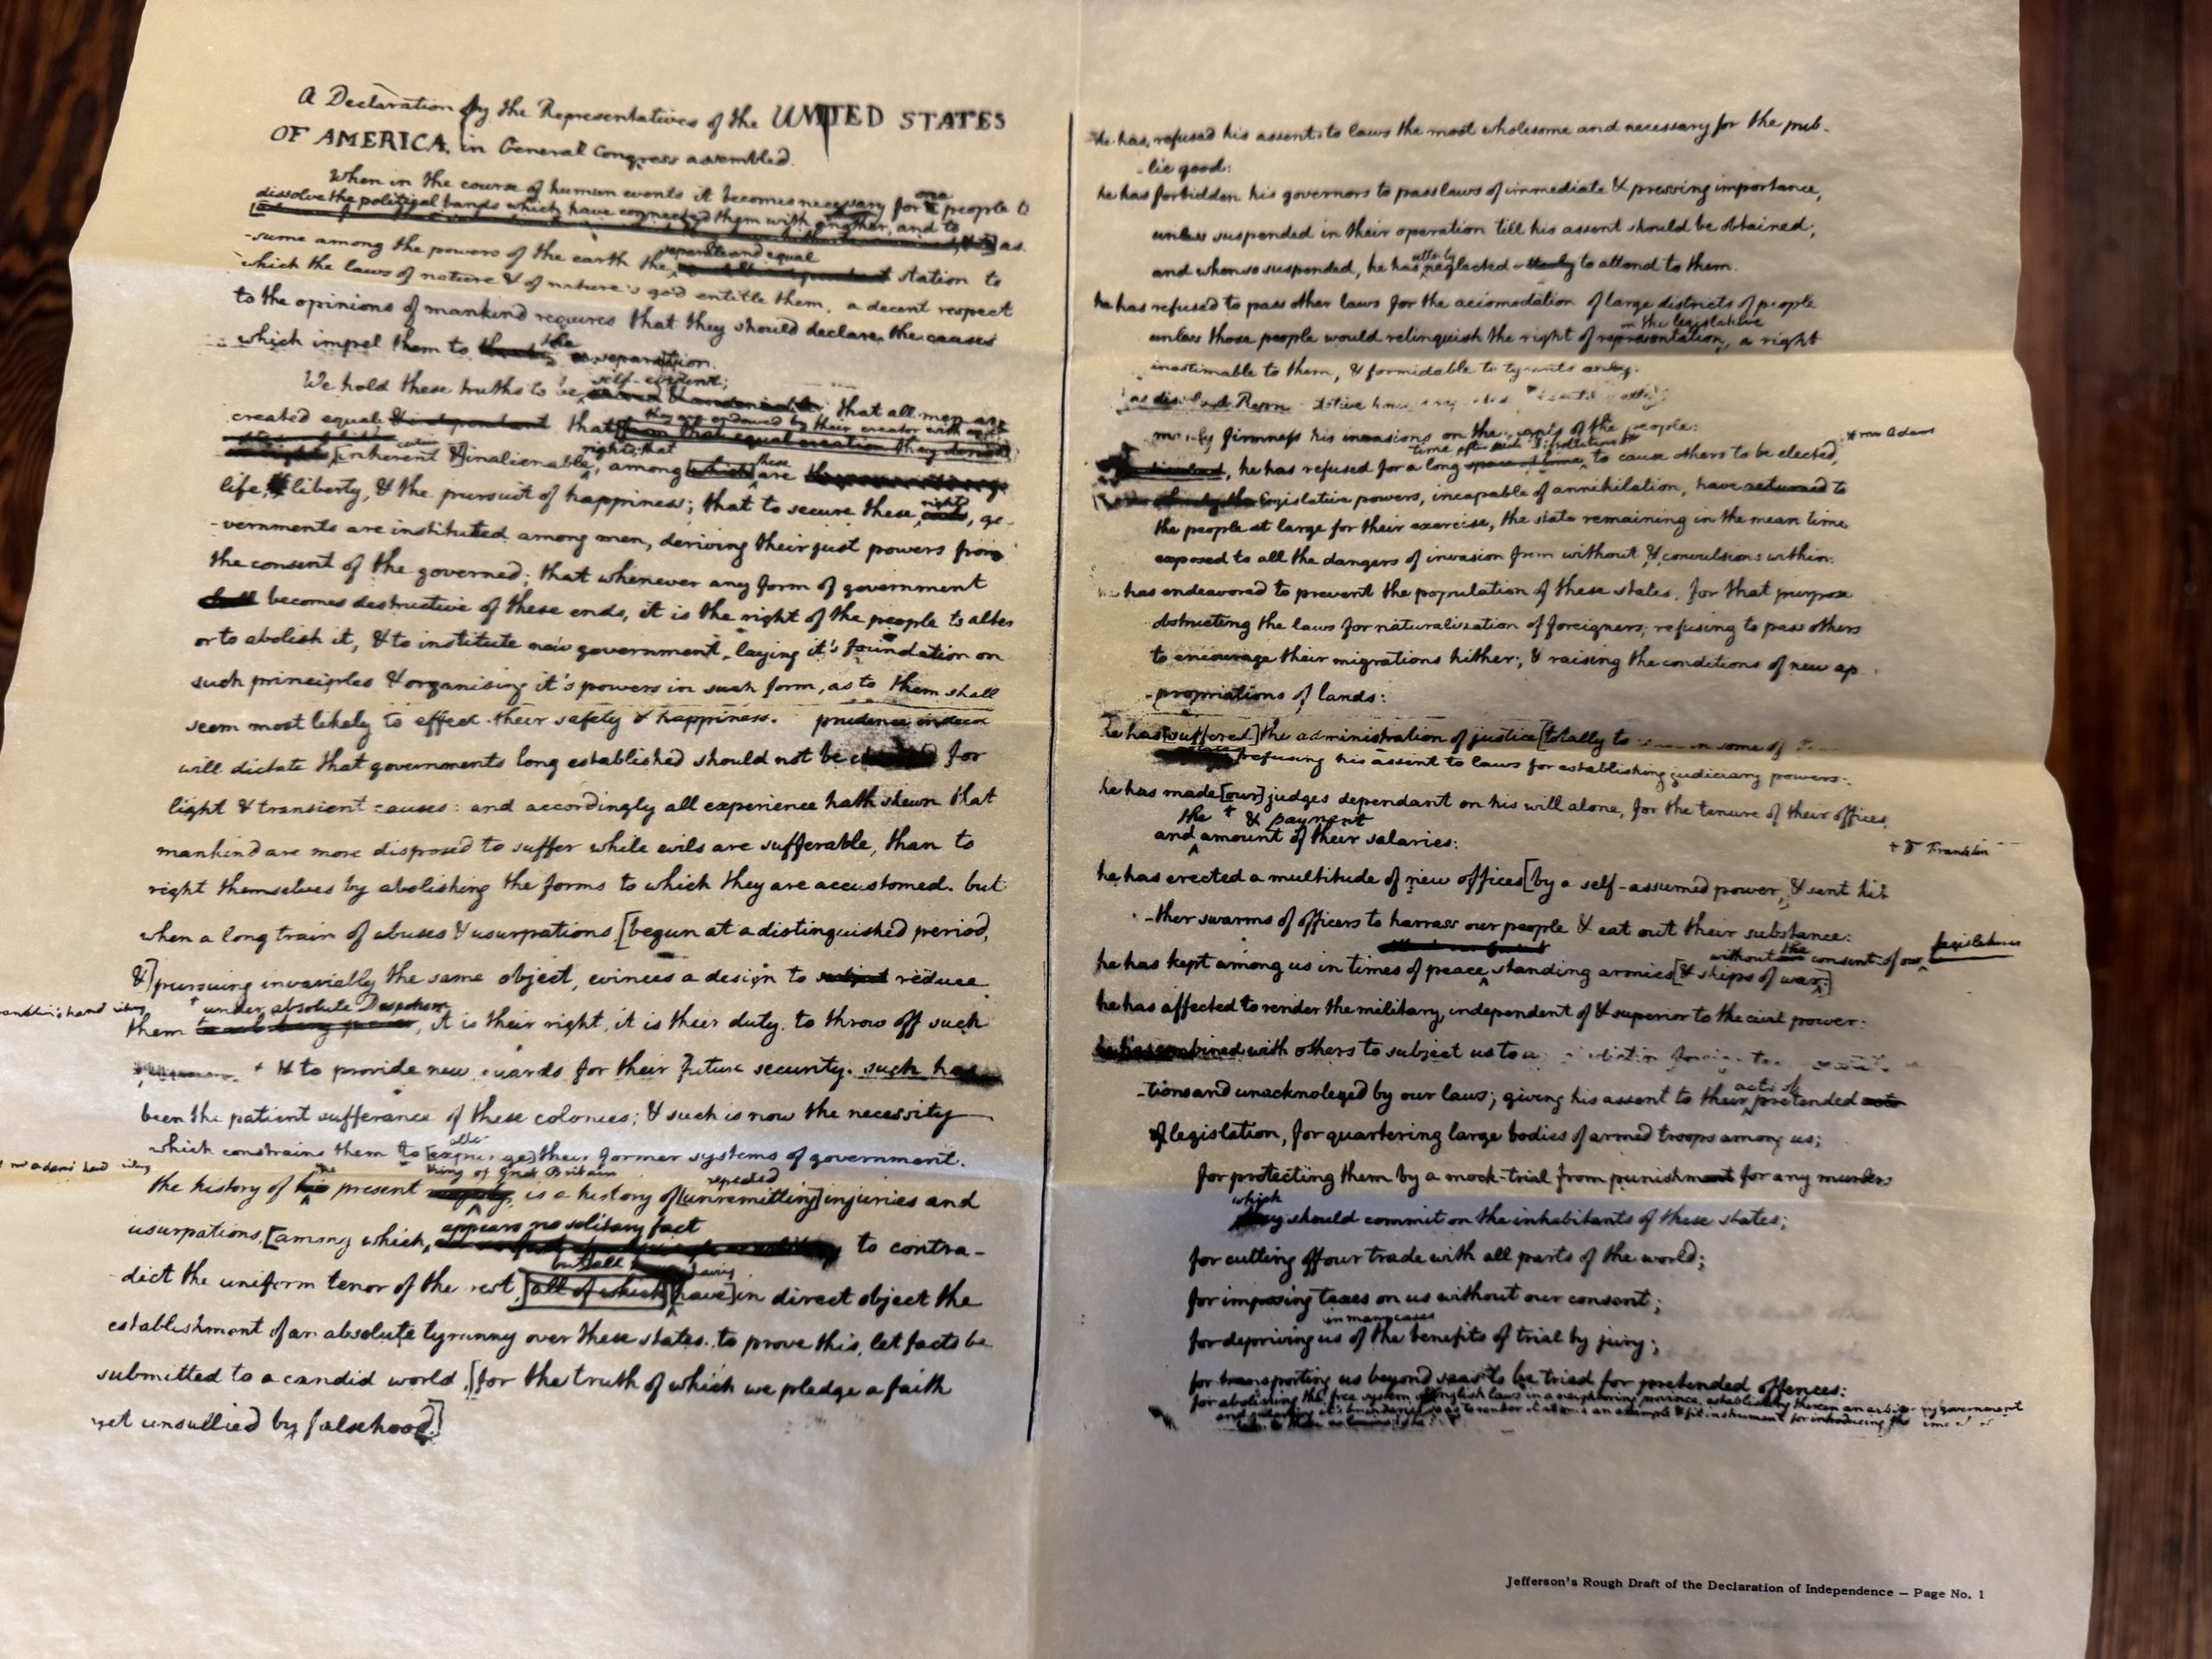 A Declaration by the Representatives of the UNITED STATES
OF AMERICA, in General Congress assembled.
When in the course of human events it becomes necessary for one people to
dissolve the political bands which have connected them with another, and to as-
-sume among the powers of the earth the separate and equal station to
which the laws of nature & of nature's god entitle them, a decent respect
to the opinions of mankind requires that they should declare the causes
which impel them to the separation.
We hold these truths to be self-evident; that all men are
created equal & independent that they are endowed by their creator with
from that equal creation they derive
rights; that
[inherent &] inalienable, among [which] these are
life, liberty, & the pursuit of happiness; that to secure these rights, go-
-vernments are instituted among men, deriving their just powers from
the consent of the governed; that whenever any form of government
becomes destructive of these ends, it is the right of the people to alter
or to abolish it, & to institute new government, laying it's foundation on
such principles & organising it's powers in such form, as to them shall
seem most likely to effect their safety & happiness. prudence indeed
will dictate that governments long established should not be for
light & transient causes: and accordingly all experience hath shewn that
mankind are more disposed to suffer while evils are sufferable, than to
right themselves by abolishing the forms to which they are accustomed. but
when a long train of abuses & usurpations [begun at a distinguished period,
&] pursuing invariably the same object, evinces a design to subject reduce
under absolute Despotism
them, it is their right, it is their duty, to throw off such
& to provide new guards for their future security. such has
been the patient sufferance of these colonies; & such is now the necessity
which constrains them to [expunge] alter their former systems of government.
the king of Great Britain repeated
the history of his present is a history of [unremitting] injuries and
usurpations, [among which, appears no solitary fact to contra-
-dict the uniform tenor of the rest, but all [all of which] [have] having in direct object the
establishment of an absolute tyranny over these states. to prove this, let facts be
submitted to a candid world, [for the truth of which we pledge a faith
yet unsullied by falsehood.]
he has refused his assent to laws the most wholesome and necessary for the pub-
-lic good:
he has forbidden his governors to pass laws of immediate & pressing importance,
unless suspended in their operation till his assent should be obtained;
and when so suspended, he has utterly neglected utterly to attend to them.
he has refused to pass other laws for the accomodation of large districts of people
in the legislature
unless those people would relinquish the right of representation, a right
inestimable to them, & formidable to tyrants only:
firmness his invasions on the rights of the people:
time after such dissolutions
+ mr Adams
he has refused for a long space of time to cause others to be elected,
legislative powers, incapable of annihilation, have returned to
the people at large for their exercise, the state remaining in the mean time
exposed to all the dangers of invasion from without & convulsions within:
he has endeavored to prevent the population of these states, for that purpose
obstructing the laws for naturalization of foreigners; refusing to pass others
to encourage their migrations hither; & raising the conditions of new ap-
-propriations of lands:
he has [suffered] the administration of justice [totally to in some of
refusing his assent to laws for establishing judiciary powers:
he has made [our] judges dependant on his will alone, for the tenure of their offices,
the + & payment
and amount of their salaries:
+ Dr Franklin
he has erected a multitude of new offices [by a self-assumed power, & sent hi-
-ther swarms of officers to harrass our people & eat out their substance:
without the consent of our legislatures
he has kept among us in times of peace standing armies [& ships of war:]
he has affected to render the military, independent of & superior to the civil power:
he has combined with others to subject us to a
-tions and unacknoleged by our laws; giving his assent to their acts of pretended acts
of legislation, for quartering large bodies of armed troops among us;
for protecting them by a mock-trial from punishment for any murders
which
they should commit on the inhabitants of these states;
for cutting off our trade with all parts of the world;
for imposing taxes on us without our consent;
in many cases
for depriving us of the benefits of trial by jury;
for transporting us beyond seas to be tried for pretended offences:
for abolishing the free system of English laws in a neighboring province, establishing therein an arbitrary government
and enlarging it's boundaries so as to render it at once an example & fit instrument for introducing the
Jefferson's Rough Draft of the Declaration of Independence — Page No. 1